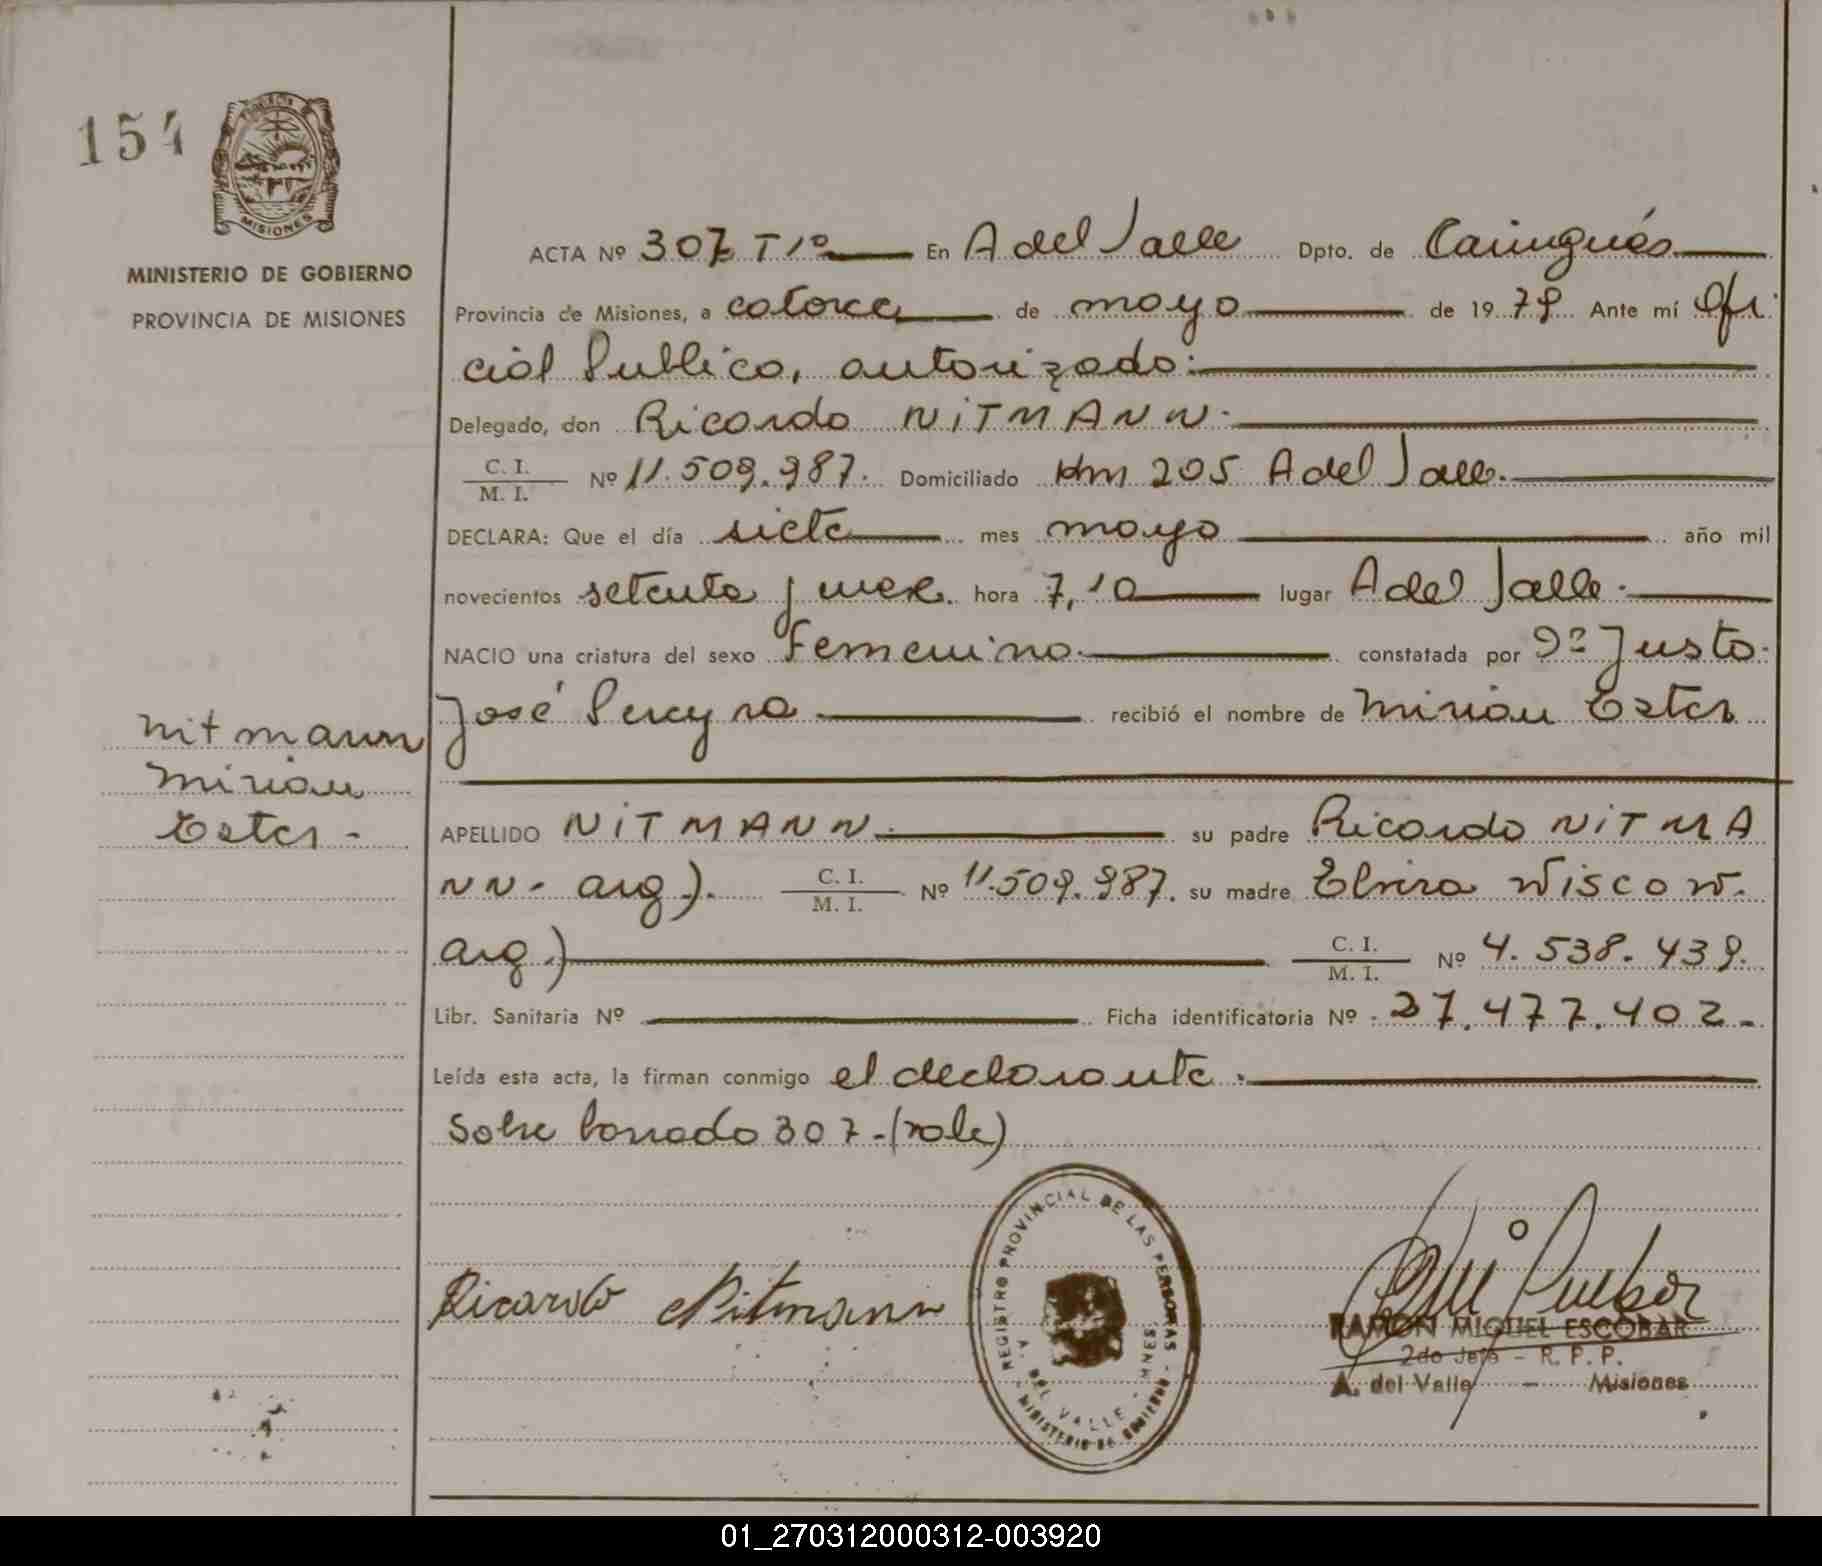 154
MISIONES
MINISTERIO DE GOBIERNO
PROVINCIA DE MISIONES
ACTA Nº 307 T 1º En A del Valle Dpto. de Cainguás
Provincia de Misiones, a catorce de mayo de 1979 Ante mí Ofi
cial Publico, autorizado:
Delegado, don Ricardo NiTMANN.
C. I.
M. I. Nº 11.509.987. Domiciliado Km 205 A del Valle.
DECLARA: Que el día siete mes mayo año mil
novecientos setenta y nueve. hora 7,10 lugar A del Valle.
NACIO una criatura del sexo Femenino. constatada por Justo
José Pereyra recibió el nombre de Mirian Ester
Nitmann
Mirian
Ester -
APELLIDO NiTMANN. su padre Ricardo NiTMA
NN- arg). C. I.
M. I. Nº 11.509.987. su madre Elvira Wiscow.
arg.) C. I.
M. I. Nº 4.538.439.
Libr. Sanitaria Nº Ficha identificatoria Nº 27.477.402-
Leída esta acta, la firman conmigo el declarante.
Sobre borrado 307-(vale)
Ricardo Nitmann
REGISTRO PROVINCIAL DE LAS PERSONAS
A. DEL VALLE - MNES.
- MINISTERIO DE GOBIERNO -
RAMON MIGUEL ESCOBAR
2do Jefe - R. P. P.
A. del Valle - Misiones
01_270312000312-003920